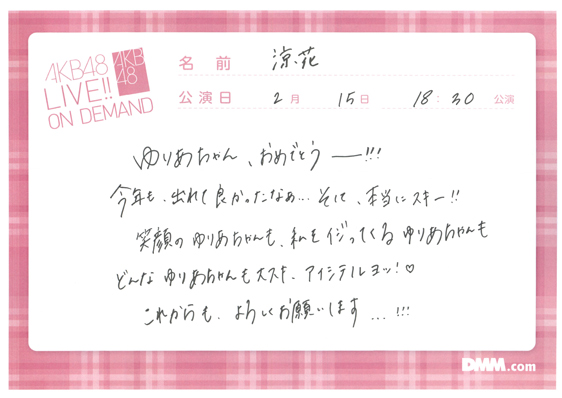 AKB48
LIVE!!
ON DEMAND
AKB
48
名 前 涼花
公演日 2月 15日 18:30 公演
ゆりあちゃん、おめでとうー!!!
今年も、出れて良かったなぁ... そして、本当にスキー!!
笑顔のゆりあちゃんも、私をイジってくるゆりあちゃんも
どんなゆりあちゃんも大スキ、アイシテルヨッ!♡
これからも、よろしくお願いします...!!!
DMM.com